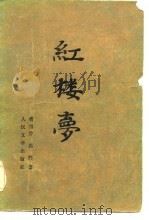 紅樓夢
曹雪芹 高鹗著
人民文学出版社